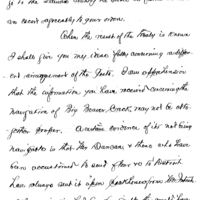 go to the
an event agreeably to your own.
When the result of the Treaty is known
I shall give you my ideas fully concerning a different
arrangement of the Posts. I am apprehensive
that the information you have received concerning the
navigation of Big Beaver Creek, may not be alto-
gether proper. A certain evidence of its not being
navigable is that the Dawsons & those who have
been accustomed to send flour &c to Detroit
have always sent it upon